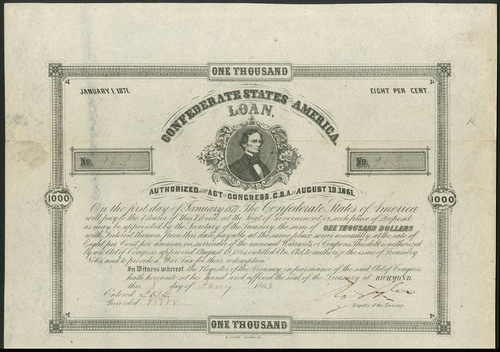 ONE THOUSAND
JANUARY 1, 1871.
EIGHT PER CENT.
CONFEDERATE STATES AMERICA.
LOAN.
No.
No.
AUTHORIZED BY ACT OF CONGRESS, C.S.A. AUGUST 19, 1861.
1000
1000
On the first day of January 1871, The Confederate States of America
will pay to the Bearer of this Bond, at the seat of Government or such place of Deposit
as may be appointed by the Secretary of the Treasury, the sum of ONE THOUSAND DOLLARS
with Interest thereon from this date, payable at the same place, semi annually, at the rate of
Eight per Cent. per annum, on surrender of the annexed Warrants or Coupons. This debt is authorized
by an Act of Congress approved August 19, 1861, entitled An Act to authorize the issue of Treasury
Notes, and to provide a War Tax for their redemption.
In Witness whereof, the Register of the Treasury, in pursuance of the said Act of Congress
hath hereunto set his hand and affixed the seal of the Treasury at RICHMOND,
this day of Jany 1863
Entered
Recorded
Register of the Treasury
ONE THOUSAND